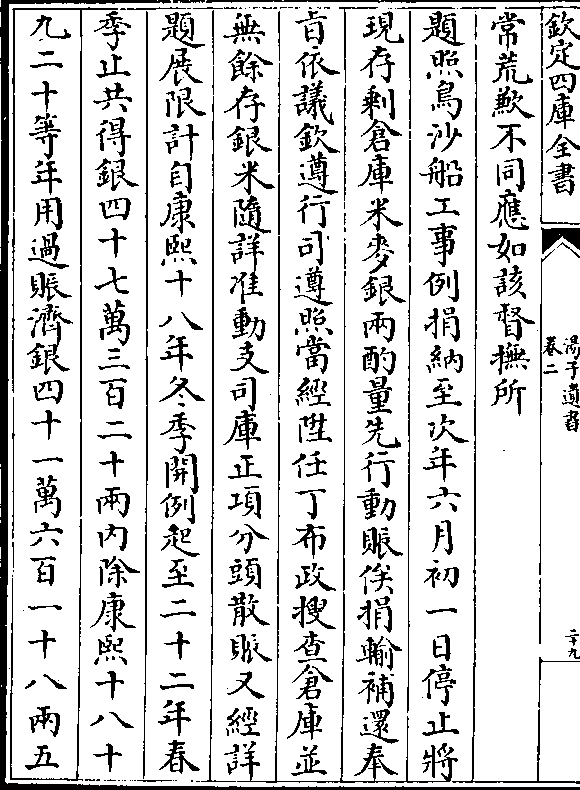 欽定四庫全書
湯子遺書
卷二
二十九
常荒歉不同應如該督撫所
題照鳥沙船工事例捐納至次年六月初一日停止將
現存剩倉庫米麥銀兩酌量先行動賑俟捐輸補還奉
㫖依議欽遵行司遵照當經陞任丁布政搜查倉庫並
無餘存銀米隨詳准動支司庫正項分頭散賑又經詳
題展限計自康熙十八年冬季開例起至二十二年春
季止共得銀四十七萬三百二十兩內除康熙十八十
九二十等年用過賑濟銀四十一萬六百一十八兩五